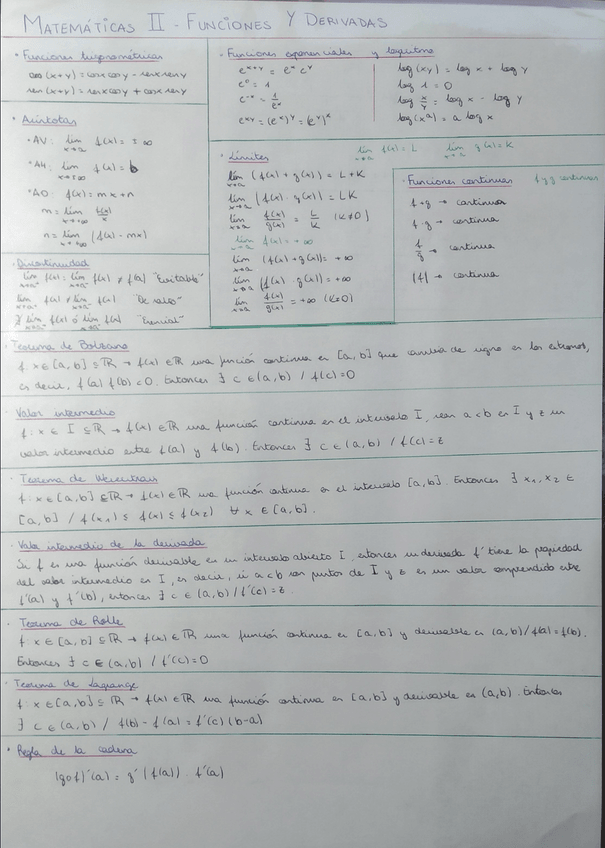 MATEMÁTICAS II - FUNCIONES Y DERIVADAS
· Funciones trigonométricas
cos(x+y) = cosx cosy - senx seny
sen(x+y) = senx cosy + cosx seny
· Asíntotas
· AV: lim x→a f(x) = ±∞
· AH: lim x→±∞ f(x) = b
· AO: f(x) = mx + n
m = lim x→±∞ f(x)/x
n = lim x→±∞ (f(x) - mx)
· Discontinuidad
"Evitable"
"De salto"
"Esencial"
· Funciones exponenciales y logaritmo
e^(x+y) = e^x e^y
e^0 = 1
e^(-x) = 1/e^x
e^(xy) = (e^x)^y = (e^y)^x
log(xy) = log x + log y
log 1 = 0
log x/y = log x - log y
log(x^a) = a log x
· Límites
lim x→a f(x) = L lim x→a g(x) = K
lim x→a (f(x) + g(x)) = L+K
lim x→a (f(x) · g(x)) = LK
lim x→a f(x)/g(x) = L/K (K≠0)
lim x→a f(x) = +∞
lim x→a (f(x) + g(x)) = +∞
lim x→a (f(x) · g(x)) = +∞
lim x→a f(x)/g(x) = +∞
· Funciones continuas f y g continuas
f+g → continua
f·g → continua
f/g → continua
|f| → continua
· Teorema de Bolzano
f: x ∈ [a,b] ⊆ ℝ → f(x) ∈ ℝ una función continua en [a,b] que cambia de signo en los extremos,
es decir, f(a) f(b) < 0. Entonces ∃ c ∈ (a,b) / f(c) = 0
· Valor intermedio
f: x ∈ I ⊆ ℝ → f(x) ∈ ℝ una función continua en el intervalo I, sean a<b en I y z un
valor intermedio entre f(a) y f(b). Entonces ∃ c ∈ (a,b) / f(c) = z
· Teorema de Weierstrass
f: x ∈ [a,b] ⊆ ℝ → f(x) ∈ ℝ una función continua en el intervalo [a,b]. Entonces ∃ x₁, x₂ ∈
[a,b] / f(x₁) ≤ f(x) ≤ f(x₂) ∀ x ∈ [a,b].
· Valor intermedio de la derivada
Si f es una función derivable en un intervalo abierto I, entonces su derivada f' tiene la propiedad
del valor intermedio en I, es decir, si a<b son puntos de I y z es un valor comprendido entre
f'(a) y f'(b), entonces ∃ c ∈ (a,b) / f'(c) = z.
· Teorema de Rolle
f: x ∈ [a,b] ⊆ ℝ → f(x) ∈ ℝ una función continua en [a,b] y derivable en (a,b) / f(a) = f(b).
Entonces ∃ c ∈ (a,b) / f'(c) = 0
· Teorema de Lagrange
f: x ∈ [a,b] ⊆ ℝ → f(x) ∈ ℝ una función continua en [a,b] y derivable en (a,b). Entonces
∃ c ∈ (a,b) / f(b) - f(a) = f'(c) (b-a)
· Regla de la cadena
(g∘f)'(a) = g'(f(a)) · f'(a)